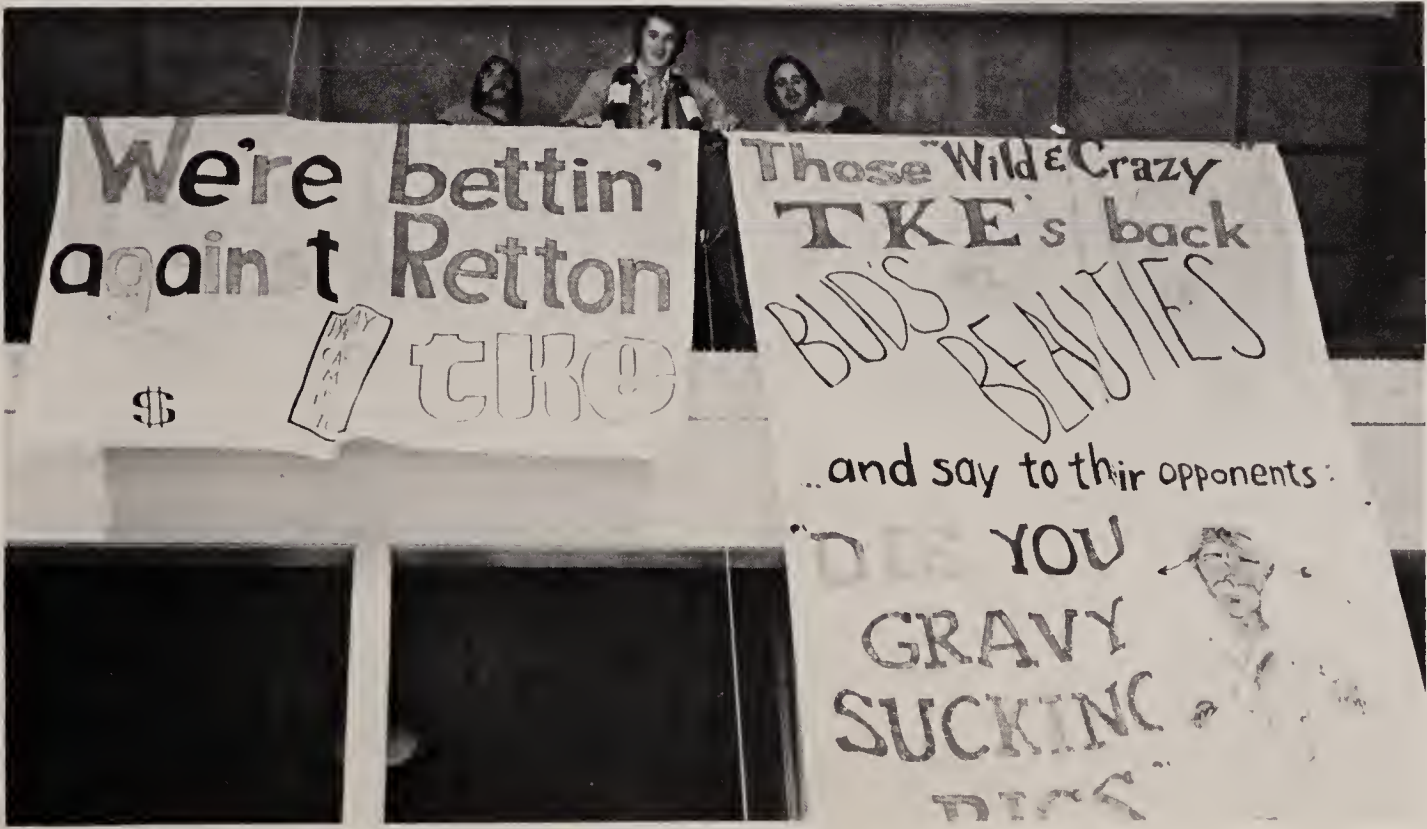 We're bettin'
against Retton
$
tke
Those "Wild & Crazy"
TKE's back
BUD'S
BEAUTIES
...and say to thir opponents:
"DIE YOU
GRAVY
SUCKING
PIGS"